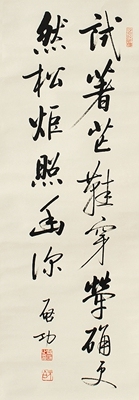 試著芒鞋穿犖確更
然松炬照幽深
啟功